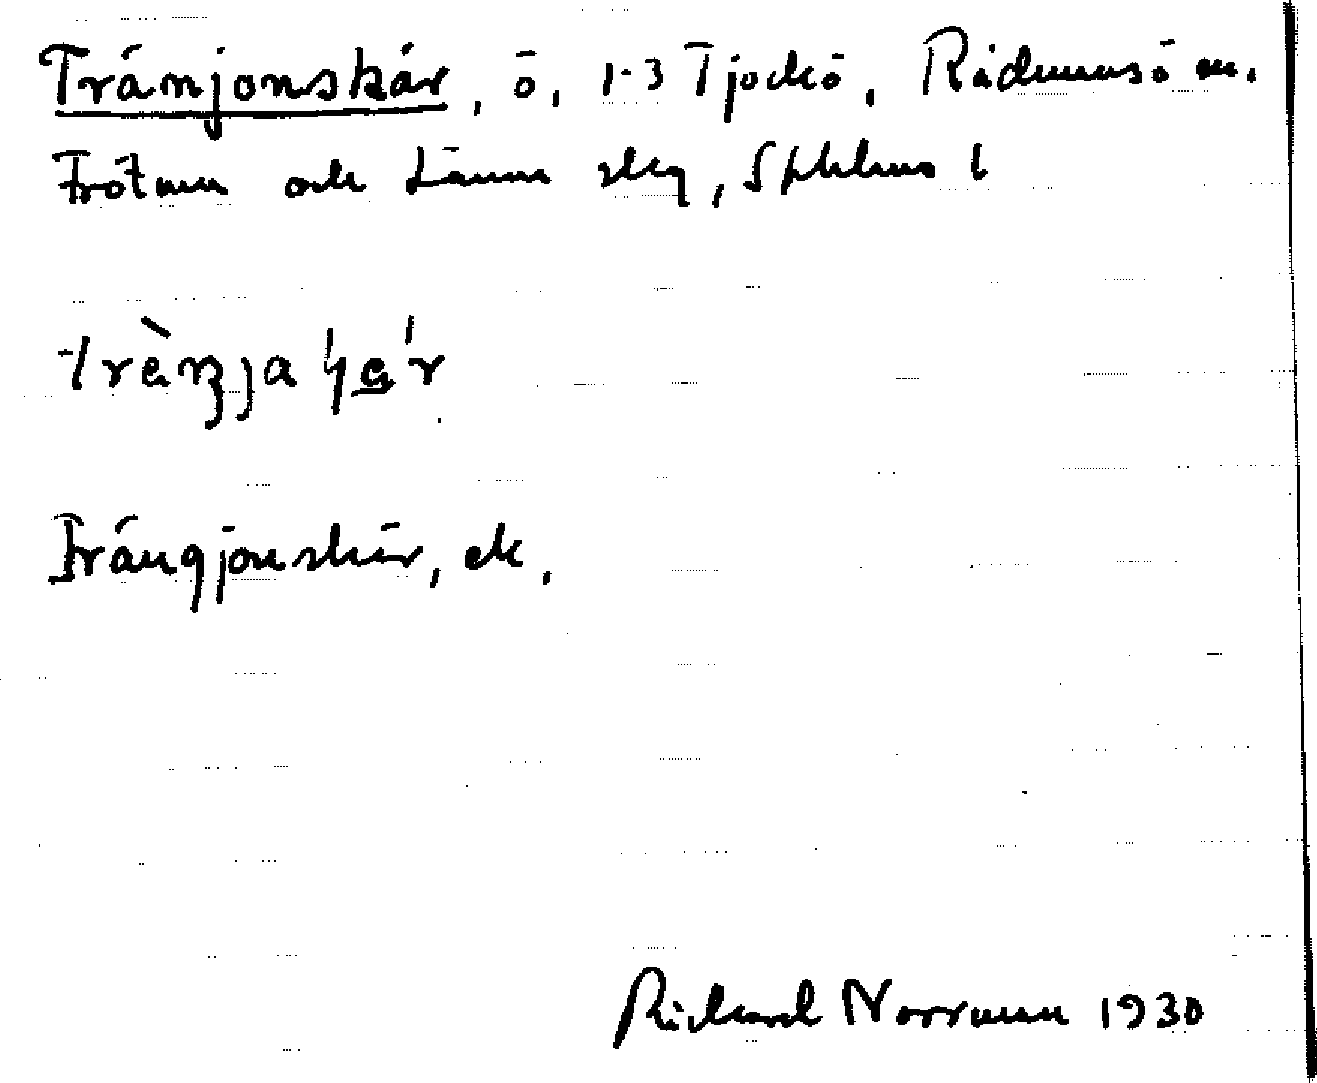 Tränjonskär, ö, 1-3 Tjockö, Rådmansö sn.
Frötuna och Länna skg, Sthlms l
Trängjonskär, ek.
Rickard Norrman 1930